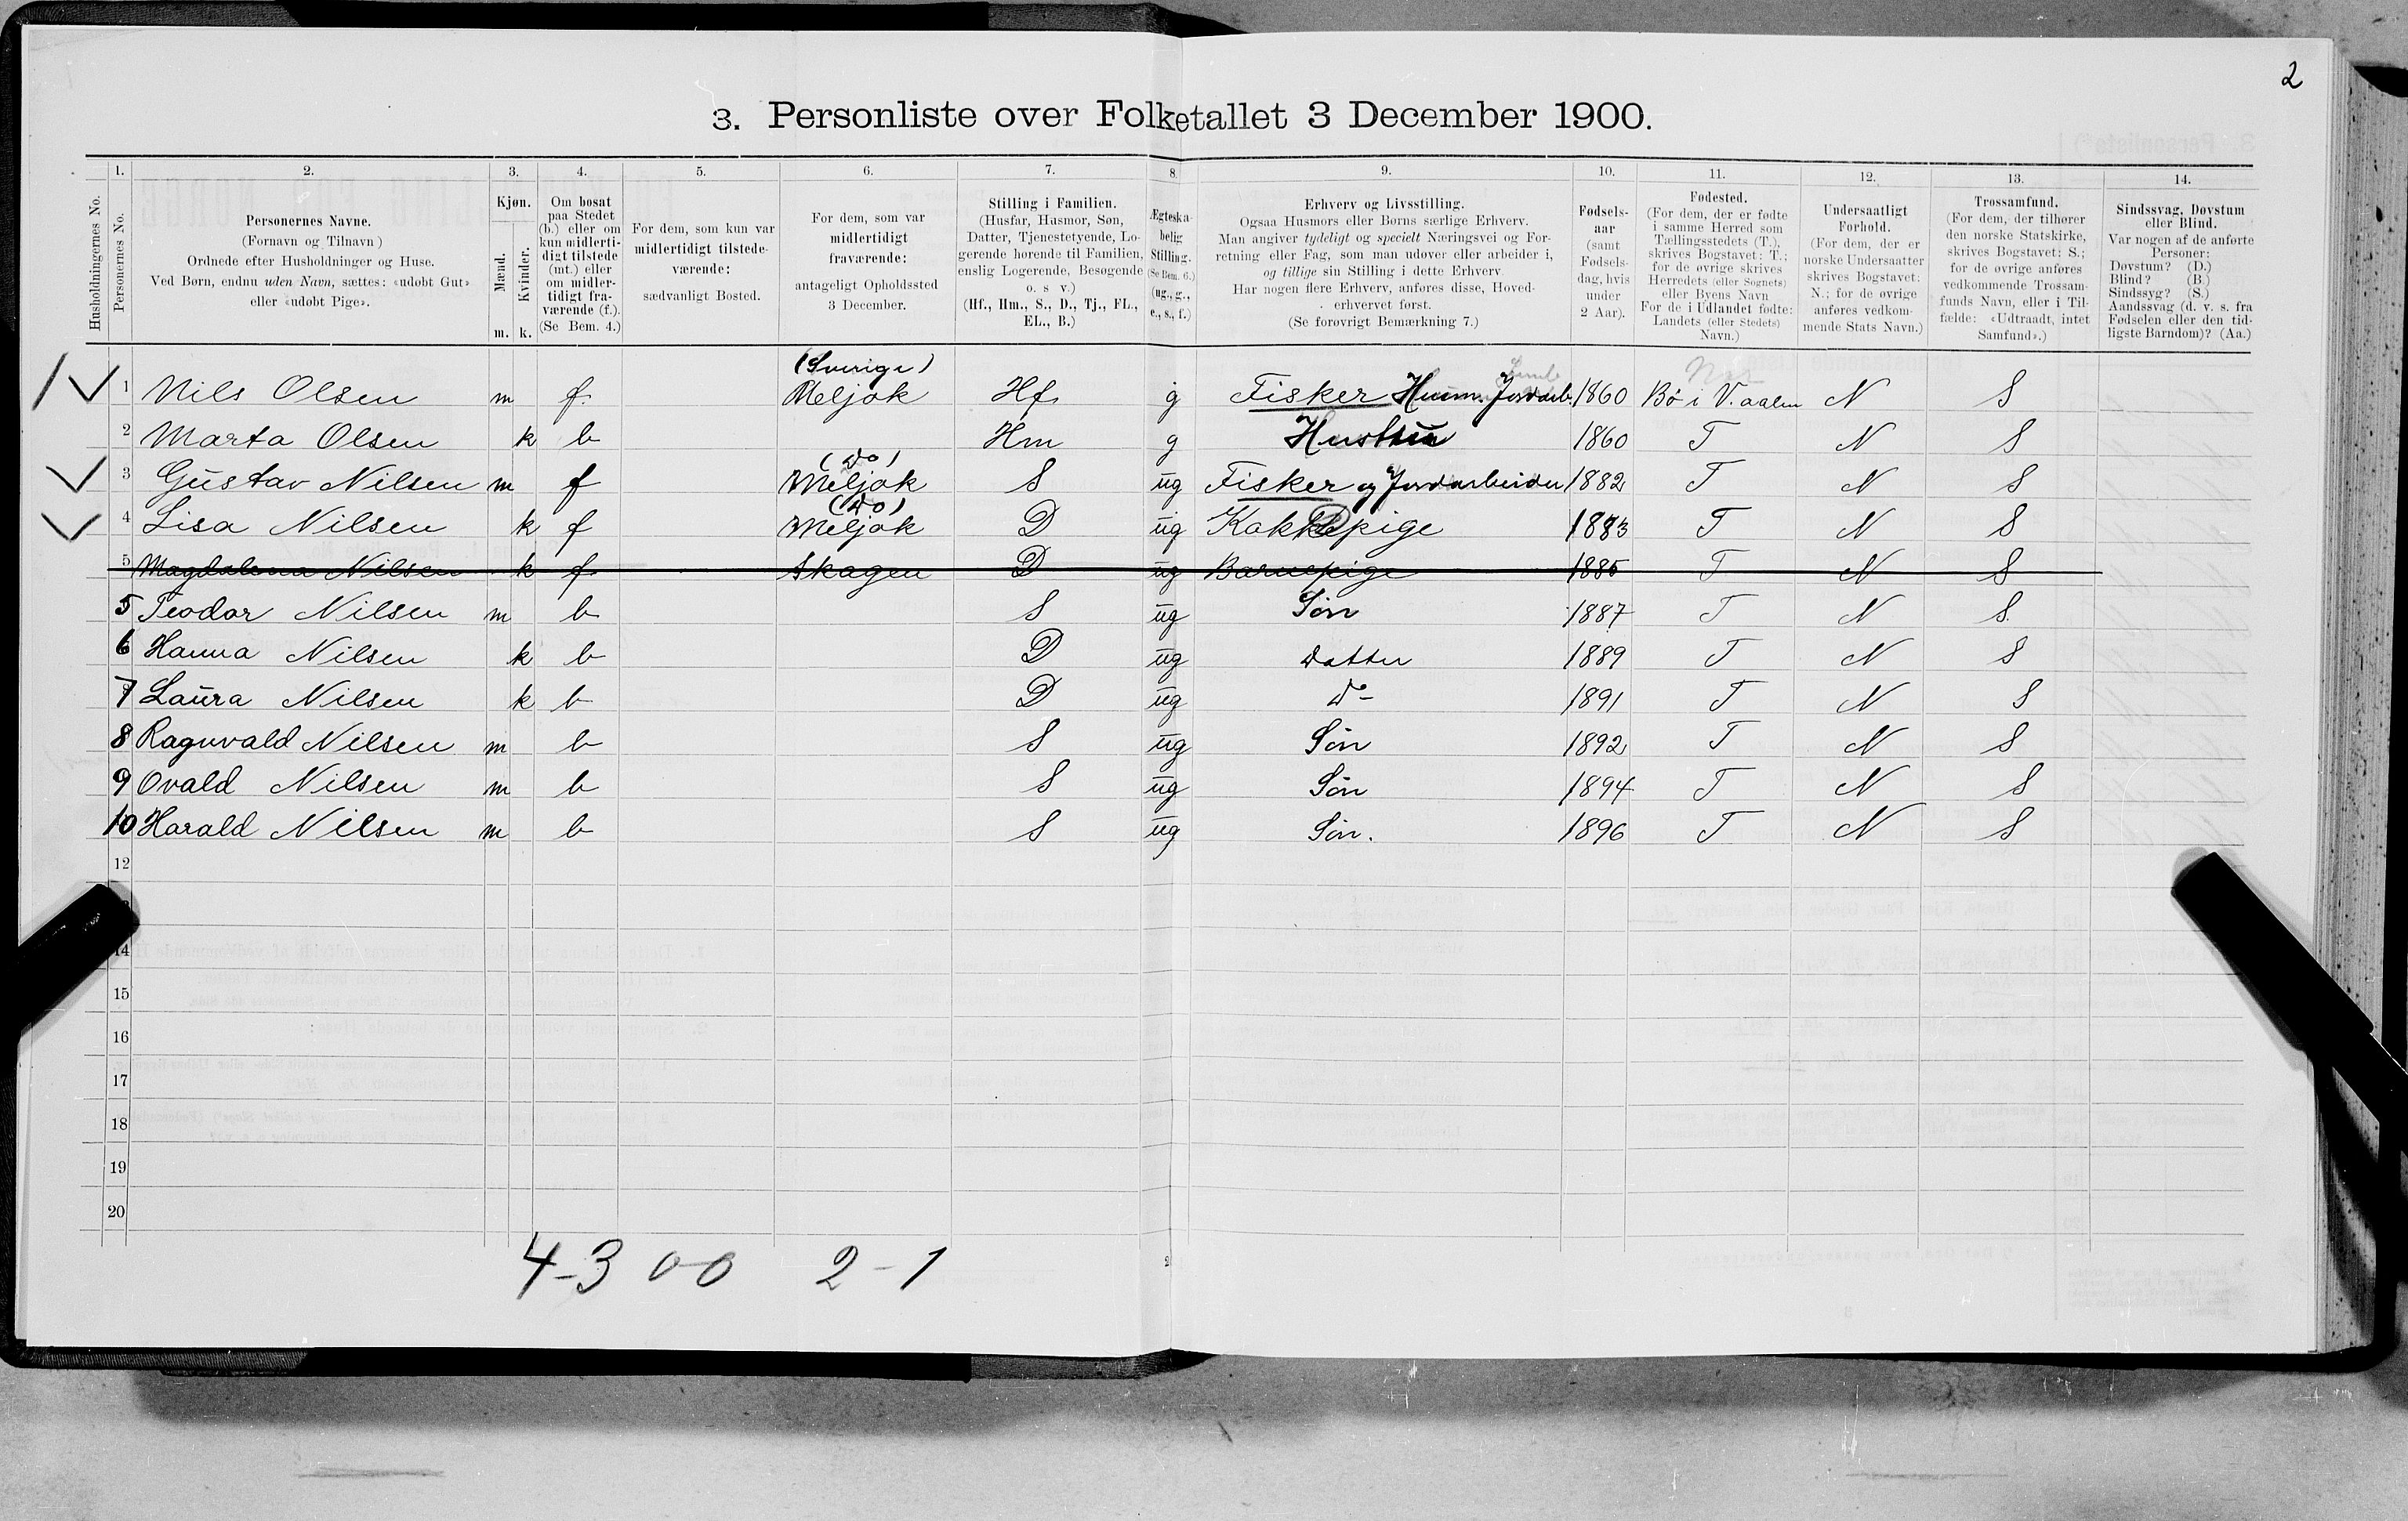 2
3. Personliste over Folketallet 3 December 1900.
Husholdningernes No.
1. Personernes No.
2. Personernes Navne.
(Fornavn og Tilnavn)
Ordnede efter Husholdninger og Huse.
Ved Børn, endnu uden Navn, sættes: «udøbt Gut»
eller «udøbt Pige».
3. Kjøn.
Mænd. m.
Kvinder. k.
4. Om bosat
paa Stedet
(b.) eller om
kun midlerti-
digt tilstede
(mt.) eller
om midler-
tidigt fra-
værende (f.).
(Se Bem. 4.)
5. For dem, som kun var
midlertidigt tilstede-
værende:
sædvanligt Bosted.
6. For dem, som var
midlertidigt
fraværende:
antageligt Opholdssted
3 December.
7. Stilling i Familien.
(Husfar, Husmor, Søn,
Datter, Tjenestetyende, Lo-
gerende hørende til Familien,
enslig Logerende, Besøgende
o. s v.)
(Hf., Hm., S., D., Tj., FL.,
EL., B.)
8. Ægteska-
belig
Stilling.
(Se Bem. 6.)
(ug., g.,
e., s., f.)
9. Erhverv og Livsstilling.
Ogsaa Husmors eller Børns særlige Erhverv.
Man angiver tydeligt og specielt Næringsvei og For-
retning eller Fag, som man udøver eller arbeider i,
og tillige sin Stilling i dette Erhverv.
Har nogen flere Erhverv, anføres disse, Hoved-
erhvervet først.
(Se forøvrigt Bemærkning 7.)
10. Fødsels-
aar
(samt
Fødsels-
dag, hvis
under
2 Aar).
11. Fødested.
(For dem, der er fødte
i samme Herred som
Tællingsstedets (T.),
skrives Bogstavet: T.;
for de øvrige skrives
Herredets (eller Sognets)
eller Byens Navn
For de i Udlandet fødte:
Landets (eller Stedets)
Navn.)
12. Undersaatligt
Forhold.
(For dem, der er
norske Undersaatter
skrives Bogstavet:
N.; for de øvrige
anføres vedkom-
mende Stats Navn.)
13. Trossamfund.
(For dem, der tilhører
den norske Statskirke,
skrives Bogstavet: S.;
for de øvrige anføres
vedkommende Trossam-
funds Navn, eller i Til-
fælde: «Udtraadt, intet
Samfund».)
14. Sindssvag, Døvstum
eller Blind.
Var nogen af de anførte
Personer:
Døvstum? (D.)
Blind? (B.)
Sindssyg? (S.)
Aandssvag (d. v. s. fra
Fødselen eller den tid-
ligste Barndom)? (Aa.)
(Sverige)
1 Nils Olsen m f. Meljok Hf g Fisker 1860 Bø i V. aalen N S
2 Marta Olsen k b Hm g Hustru 1860 T N S
(Do)
3 Gustav Nilsen m f Meljok S ug Fisker og Jordarbeider 1882 T N S
(Do)
4 Lisa Nilsen k f Meljok D ug Kokkepige 1883 T N S
5 Magdalena Nilsen k f Skagen D ug Barnepige 1885 T N S
5 Teodor Nilsen m b S ug Søn 1887 T N S.
6 Hanna Nilsen k b D ug Datter 1889 T N S
7 Laura Nilsen k b D ug Do 1891 T N S
8 Ragnvald Nilsen m b S ug Søn 1892 T N S
9 Ovald Nilsen m b S ug Søn 1894 T N S
10 Harald Nilsen m b S ug Søn. 1896 T N S
12
14
15
16
17
18
19
20
4-3 0-0 2-1
2